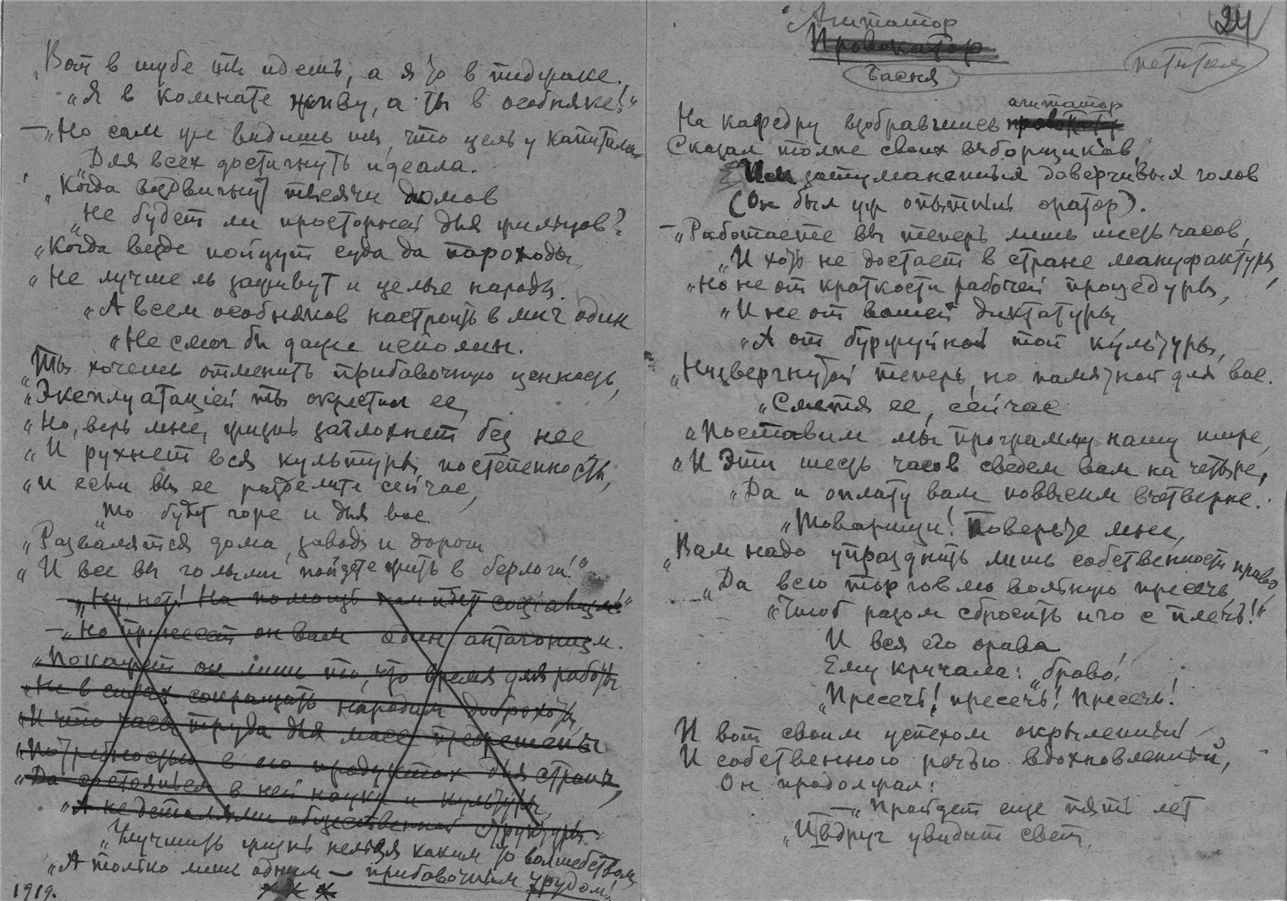 „Вот в шубе ты идешь, а я то в пиджаке.
„Я в комнате живу, а ты в особняке!“
— „Но сам уж видишь ты, что цель у капитала
„Для всех достигнуть идеала.
„Когда воздвигнут тысячи домов
„Не будет ли просторней для жильцов?
„Когда везде пойдут суда да пароходы,
„Не лучше ль заживут и целые народы.
„А всем особняков настроить в миг один
„Не смог бы даже исполин.
„Ты хочешь отменить прибавочную ценность,
„Эксплуатацией ты окрестил ее,
„Но, верь мне, жизнь заглохнет без нее
„И рухнет вся культуры постепенность,
„И если вы ее разделите сейчас,
„То будет горе и для вас.
„Развалятся дома, заводы и дороги
„И все вы голыми пойдете жить в берлоги!“
— „Ну, нет! На помощь нам идет социализм!“
— „Но принесет он вам один антагонизм.
„Покажет он лишь то, что время для работы
„Не в силах сокращать народам доброхоты,
„И что часы труда для масс предрешены
„Потребностью в его продуктах для страны,
„Да состояньем в ней науки и культуры,
„А не деталями общественной структуры.
„Улучшить жизнь нельзя каким то волшебством,
„А только лишь одним — прибавочным трудом!“
1919.
Агитатор
Провокатор
Басня
петитом
24
агитатор
На кафедру взобравшись провокатор
Сказал толпе своих выборщиков,
Им затуманенных доверчивых голов
(Он был уж опытный оратор).
— „Работаете вы теперь лишь шесть часов,
„И хоть не достает в стране мануфактуры,
„Но не от краткости рабочей процедуры,
„И не от вашей диктатуры,
„А от буржуйной той культуры,
„Низвергнутой теперь, но памятной для вас.
„Сметя ее, сейчас
„Поставим мы программу нашу шире,
„И эти шесть часов сведем вам на четыре,
„Да и оплату вам повысим вчетверне.
„Товарищи! Поверьте мне,
„Вам надо упразднить лишь собственности право
„Да всю торговлю вольную пресечь
„Чтоб разом сбросить иго с плечь!“
И вся его орава
Ему кричала: „браво!
„Пресечь! пресечь! Пресечь!
И вот своим успехом окрыленный
И собственного речью вдохновленный,
Он продолжал:
— „Пройдет еще пять лет
„И вдруг увидит свет,